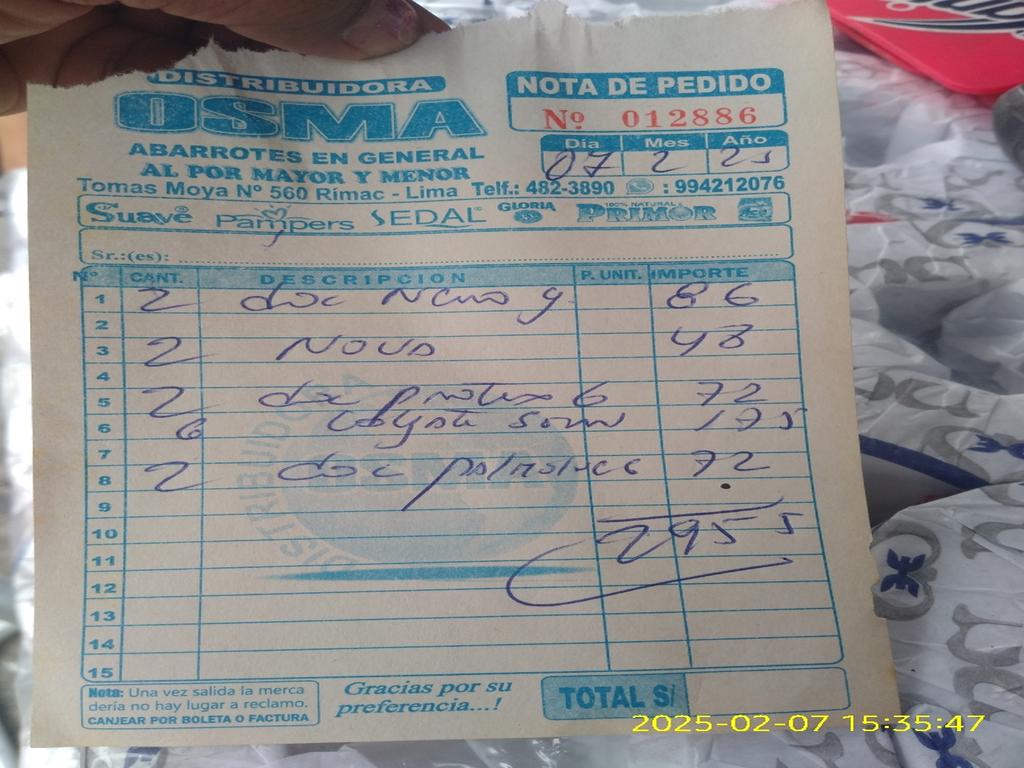 DISTRIBUIDORA
OSMA
ABARROTES EN GENERAL
AL POR MAYOR Y MENOR
Tomas Moya Nº 560 Rímac - Lima Telf.: 482-3890 : 994212076
NOTA DE PEDIDO
Nº 012886
Dia Mes Año
07 2 25
Suave Pampers SEDAL GLORIA 100% NATURAL PRIMOR
Sr.:(es):
Nº CANT. DESCRIPCION P. UNIT. IMPORTE
1 2 doc 86
2
3 2 48
4
5 2 doc protex 6 72
6 6 175
7
8 2 doc palmolive 72
9
10 295 5
11
12
13
14
15
DISTRIBUIDORA
OSMA
Nota: Una vez salida la merca
dería no hay lugar a reclamo.
CANJEAR POR BOLETA O FACTURA
Gracias por su
preferencia...!
TOTAL S/
2025-02-07 15:35:47